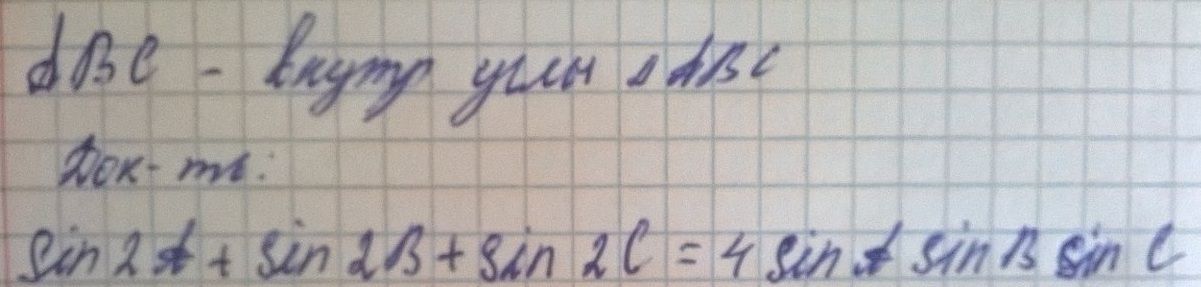 ABC - внутр углы △ ABC
Док-ть:
sin 2A + sin 2B + sin 2C = 4 sin A sin B sin C